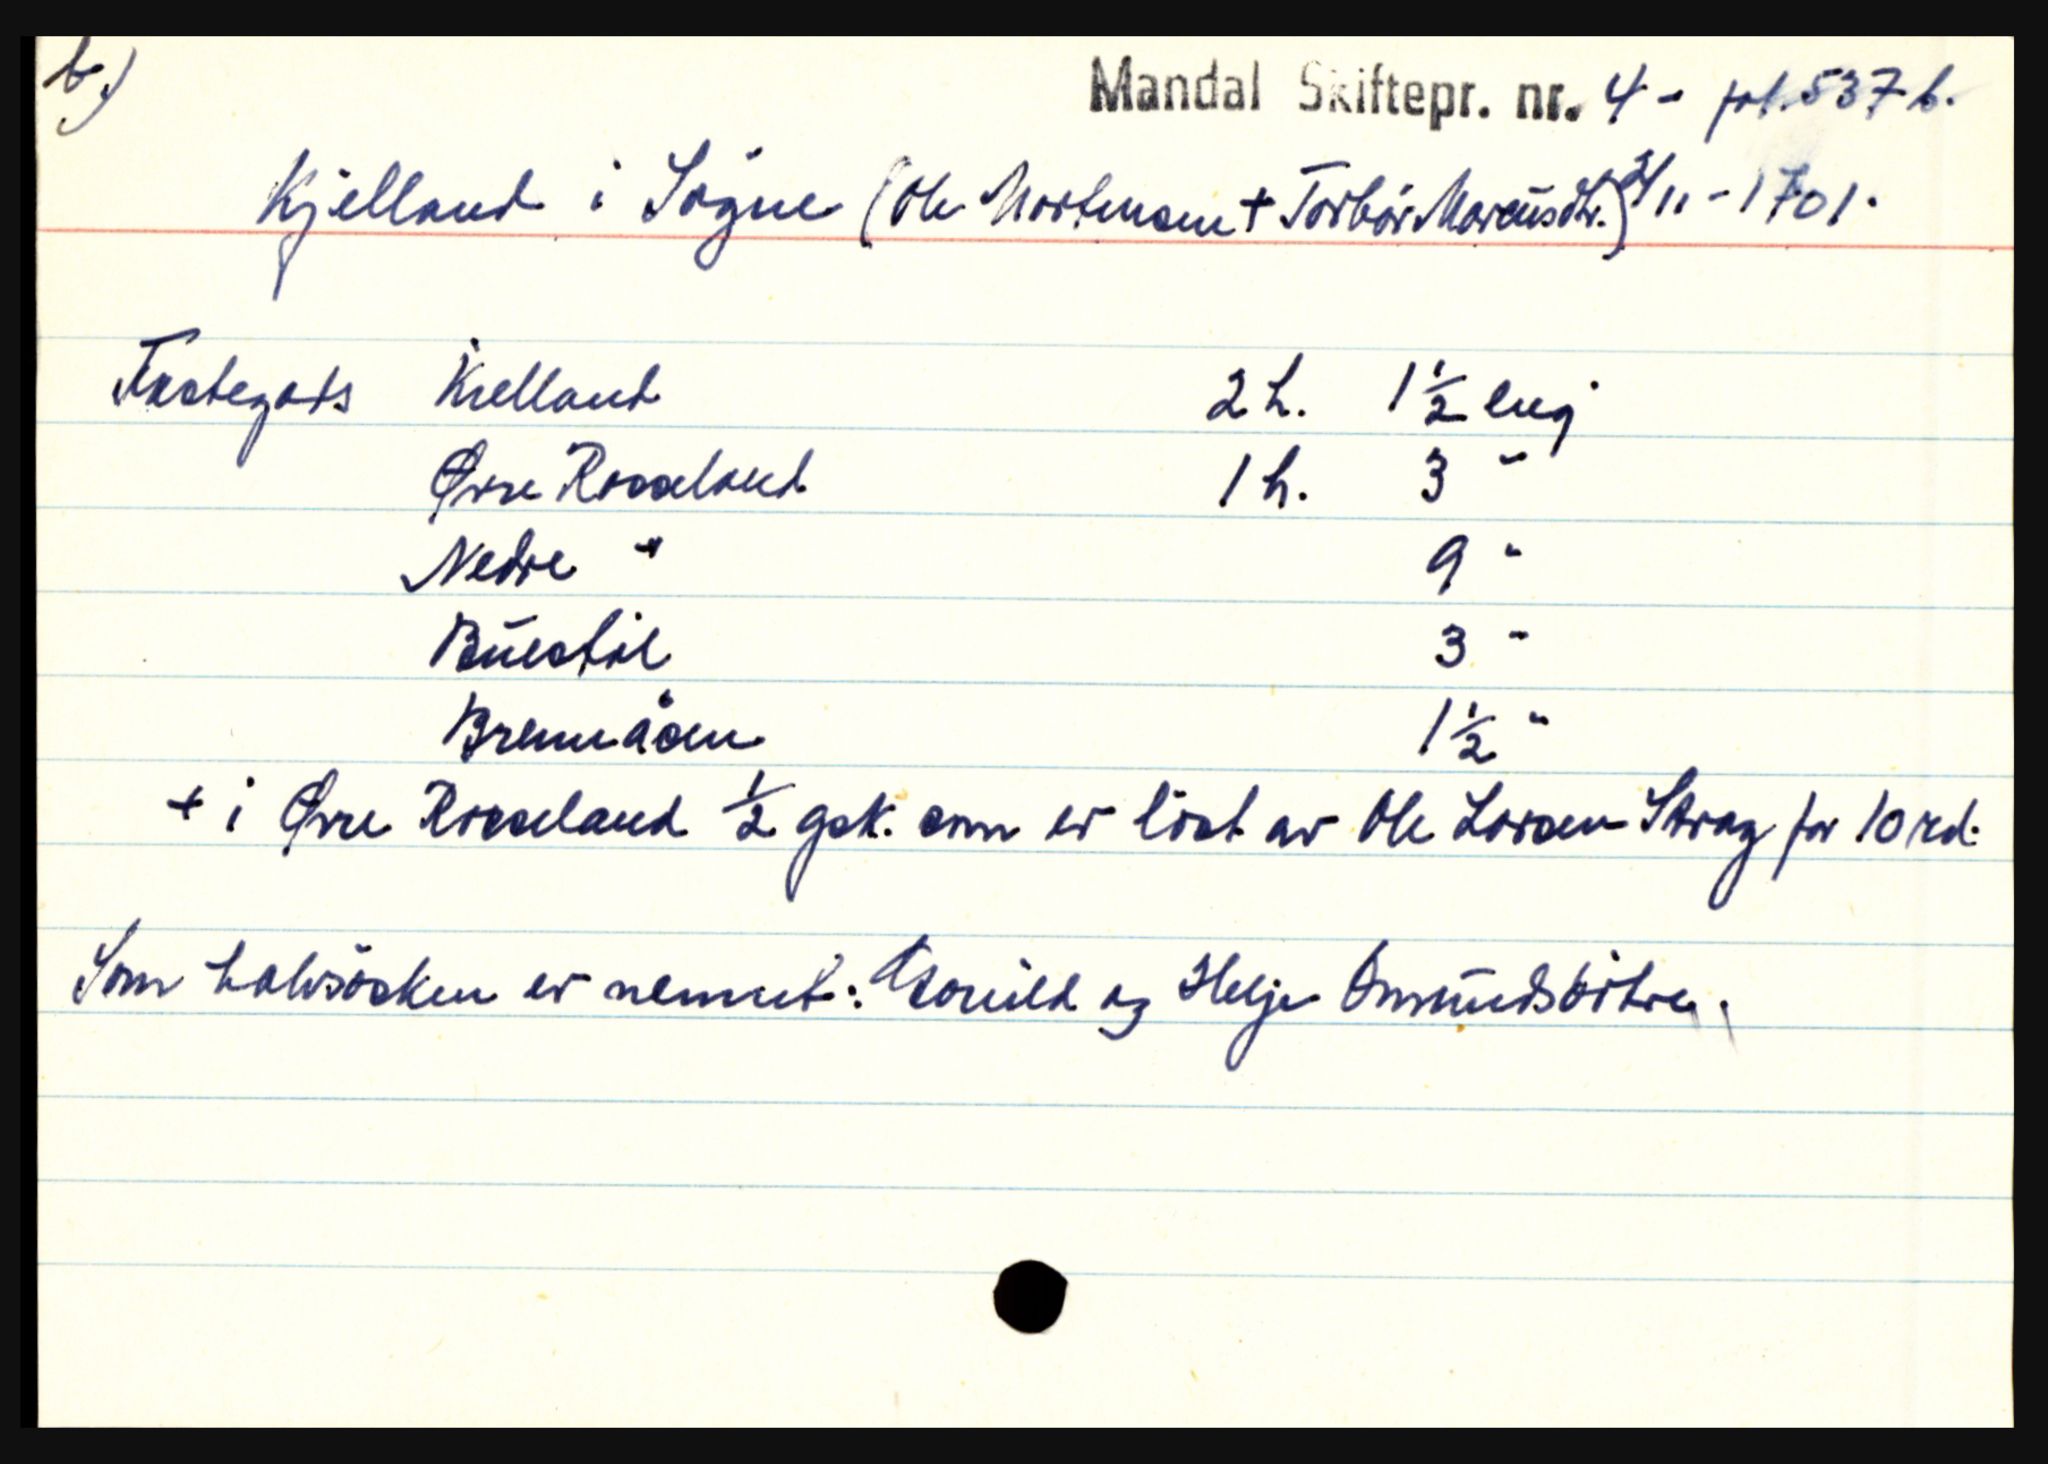 b.)
Mandal Skiftepr. nr. 4 - fol. 537 b.
Kjelland i Søgne (Ole Mortensen + Torbør Marcusdtr.) 2/11 - 1701.
Faste gods Kielland 2 h. 1 1/2 eng
Øvre Rosseland 1 h. 3 "
Nedre " 9 "
Buestøl 3 "
Brennåsen 1 1/2 "
+ i Øvre Rosseland 1/2 gsk. som er løst av Ole Larsen Stray for 10 rd.
Som halvsøsken er nemnt: Asouild og Helje Omundsdøtre.